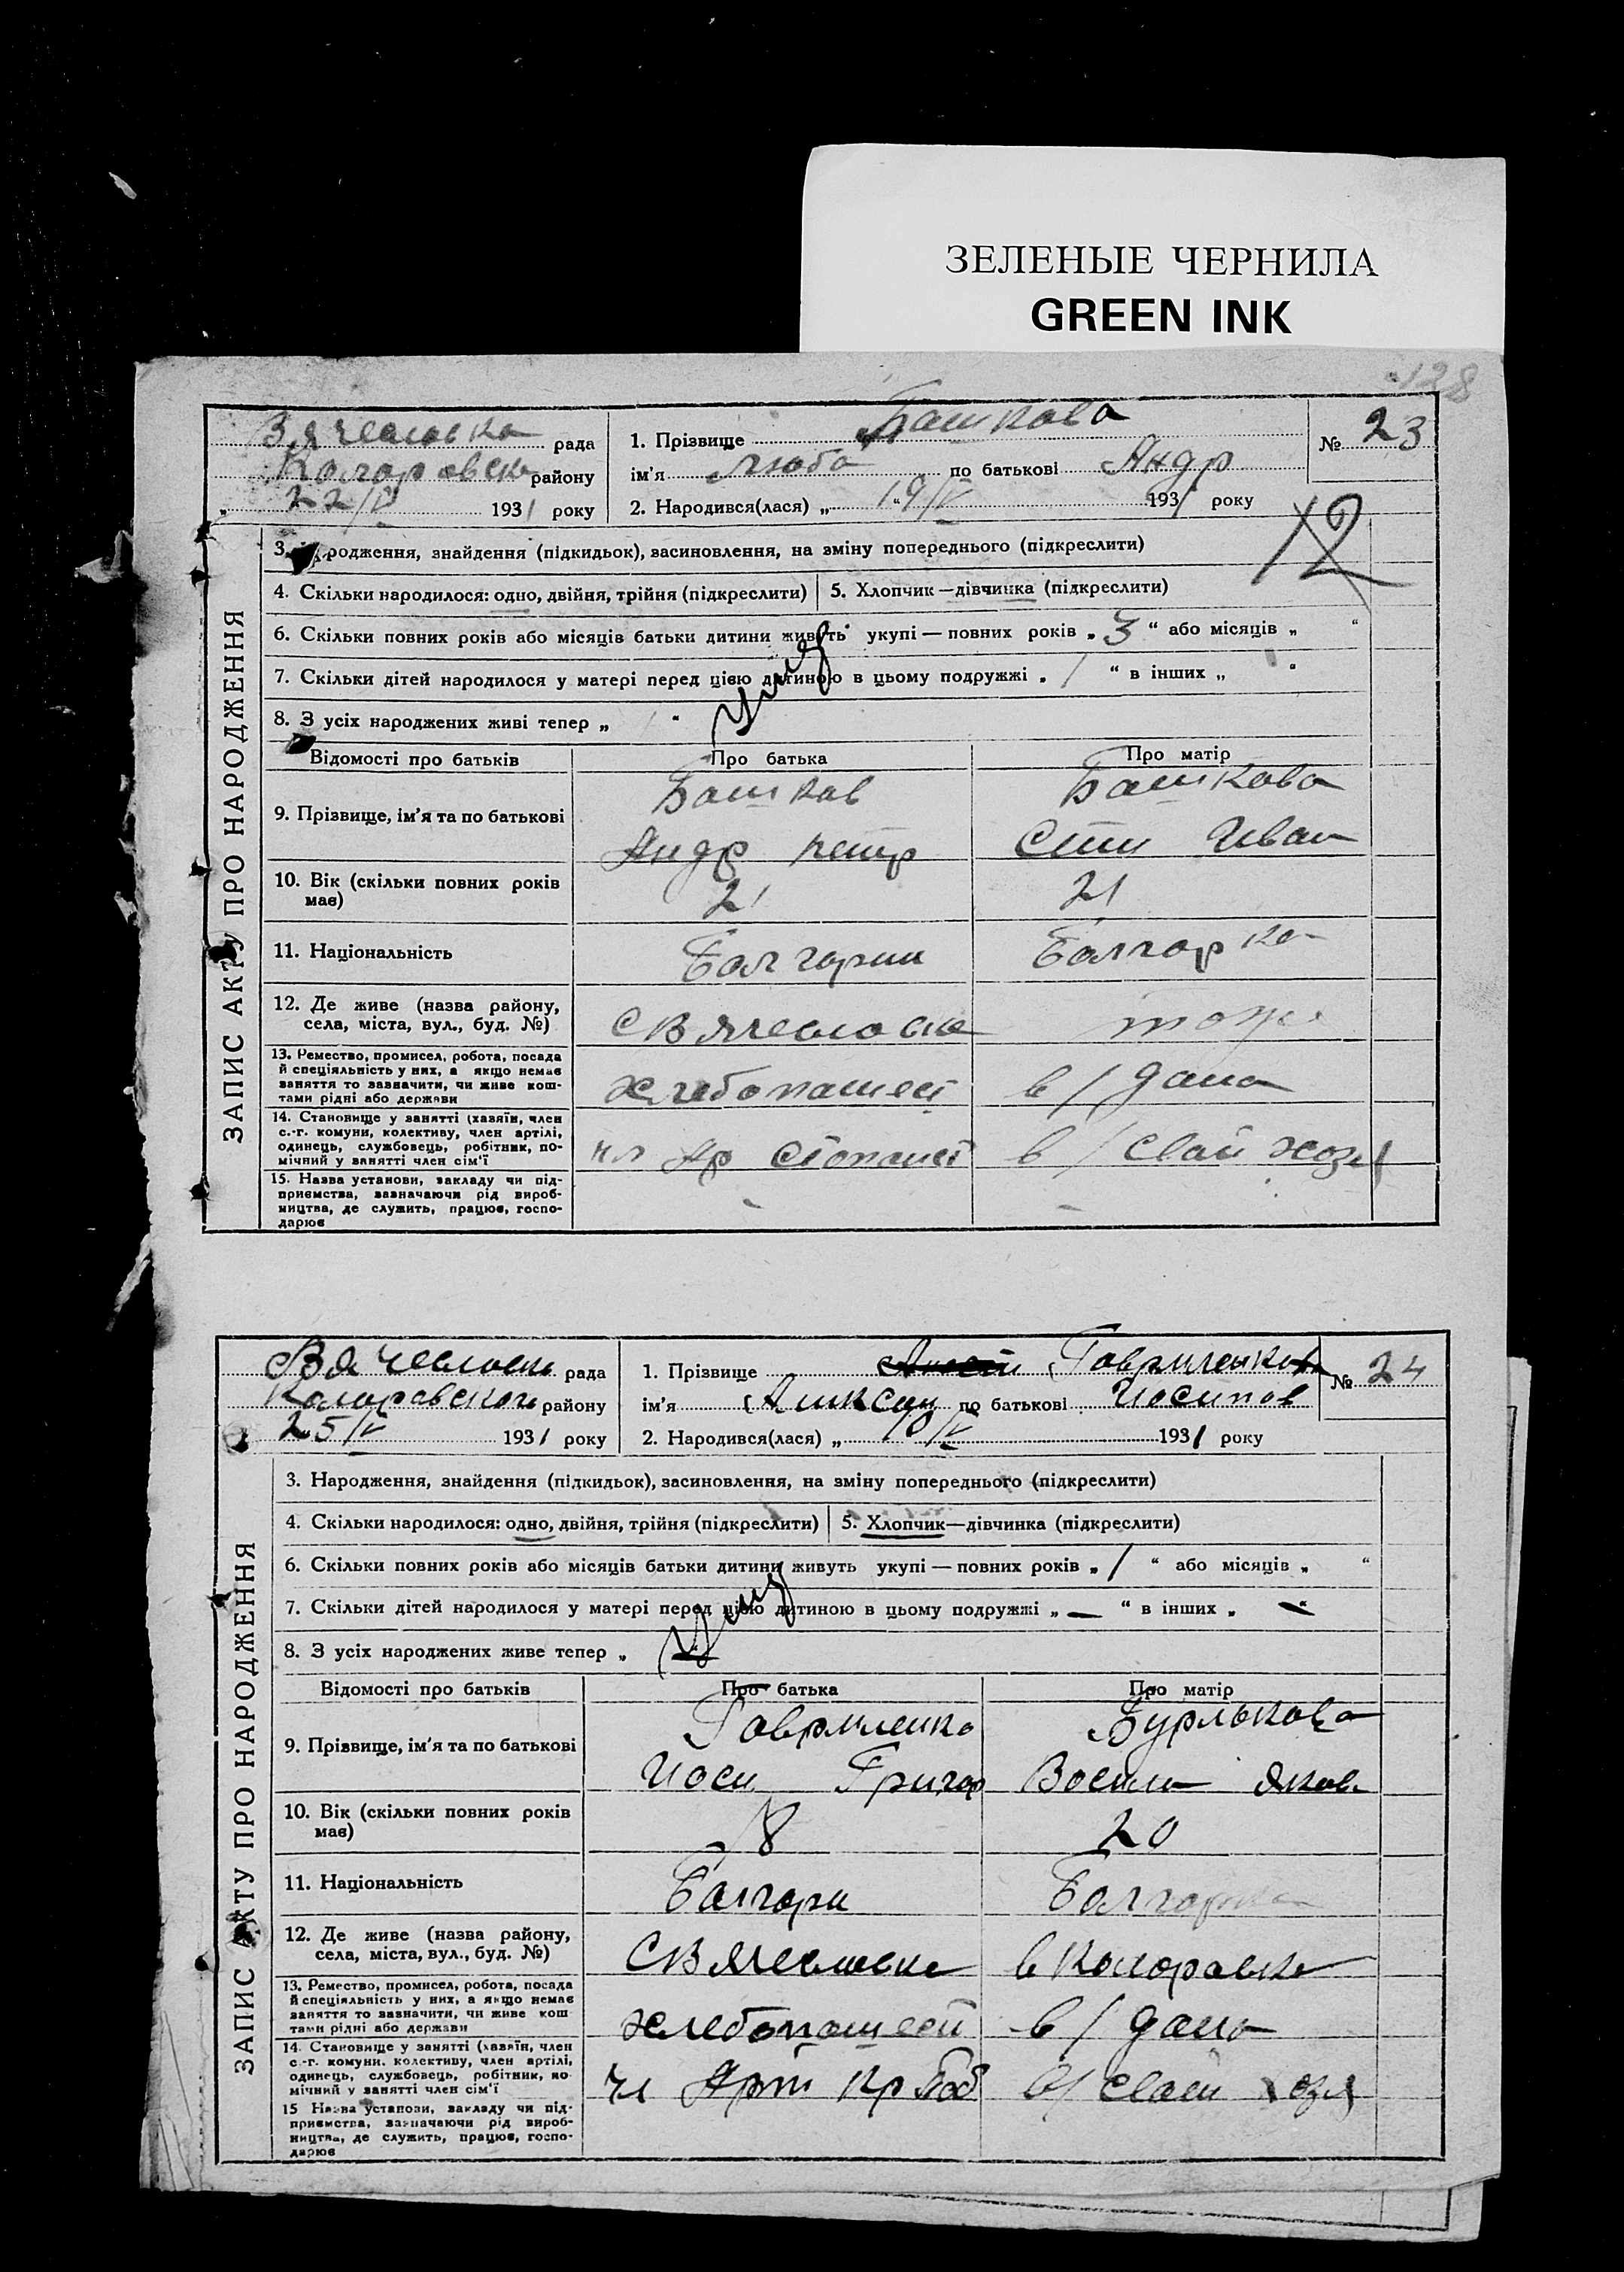 ЗЕЛЕНЫЕ ЧЕРНИЛА
GREEN INK
128
ЗАПИС АКТУ ПРО НАРОДЖЕННЯ
Вячеславка рада
Коларовск району
22/V 1931 року
1. Прізвище Башкова
ім'я Люба по батькові Андр
2. Народився(лася) „ 19/V 1931 року
№ 23
12
3. родження, знайдення (підкидьок), засиновлення, на зміну попереднього (підкреслити)
4. Скільки народилося: одно, двійня, трійня (підкреслити) 5. Хлопчик—дівчинка (підкреслити)
6. Скільки повних років або місяців батьки дитини живуть укупі — повних років „ 3 “ або місяців „ “
7. Скільки дітей народилося у матері перед цією дитиною в цьому подружжі „ 1 “ в інших „ “
8. З усіх народжених живі тепер „ 1 “
Відомості про батьків Про батька Про матір
9. Прізвище, ім'я та по батькові
Башков Башкова
Андр петр Иван
10. Вік (скільки повних років має) 21 21
11. Національність Болгарин Болгарка
12. Де живе (назва району, села, міста, вул., буд. №) С Вячеславка тоже
13. Ремество, промисел, робота, посада
й спеціяльність у них, а якщо немає
заняття то зазначити, чи живе кош-
тами рідні або держави
хлебопашест в/дома
14. Становище у занятті (хазяїн, член
с.-г. комуни, колективу, член артілі,
одинець, службовець, робітник, по-
мічний у занятті член сім'ї
Ар в/свой хозя
15. Назва установи, закладу чи під-
приємства, зазначаючи рід вироб-
ництва, де служить, працює, госпо-
дарює
- -
ЗАПИС АКТУ ПРО НАРОДЖЕННЯ
Вячеславка рада
Коларовского району
25/V 1931 року
1. Прізвище Гавриленков
ім'я Алексан по батькові Иосипов
2. Народився(лася) „ 10/V 1931 року
№ 24
3. Народження, знайдення (підкидьок), засиновлення, на зміну попереднього (підкреслити)
4. Скільки народилося: одно, двійня, трійня (підкреслити) 5. Хлопчик—дівчинка (підкреслити)
6. Скільки повних років або місяців батьки дитини живуть укупі — повних років „ 1 “ або місяців „ “
7. Скільки дітей народилося у матері перед цією дитиною в цьому подружжі „ — “ в інших „ — “
8. З усіх народжених живе тепер „ — “
Відомості про батьків Про батька Про матір
9. Прізвище, ім'я та по батькові
Гавриленко Бурлькова
Иоси Григор Васили Яков
10. Вік (скільки повних років має) 18 20
11. Національність Болгари Болгарка
12. Де живе (назва району, села, міста, вул., буд. №) С Вячеславка в Коларовка
13. Ремество, промисел, робота, посада
й спеціяльність у них, а якщо немає
заняття то зазначити, чи живе кош
тами рідні або держави
хлебопашест в/дома
14. Становище у занятті (хазяїн, член
с.-г. комуни, колективу, член артілі,
одинець, службовець, робітник, по
мічний у занятті член сім'ї
чл Арт Кр в/свой хозя
15 Назва установи, закладу чи під-
приємства, зазначаючи рід вироб-
ництва, де служить, працює, госпо-
дарює